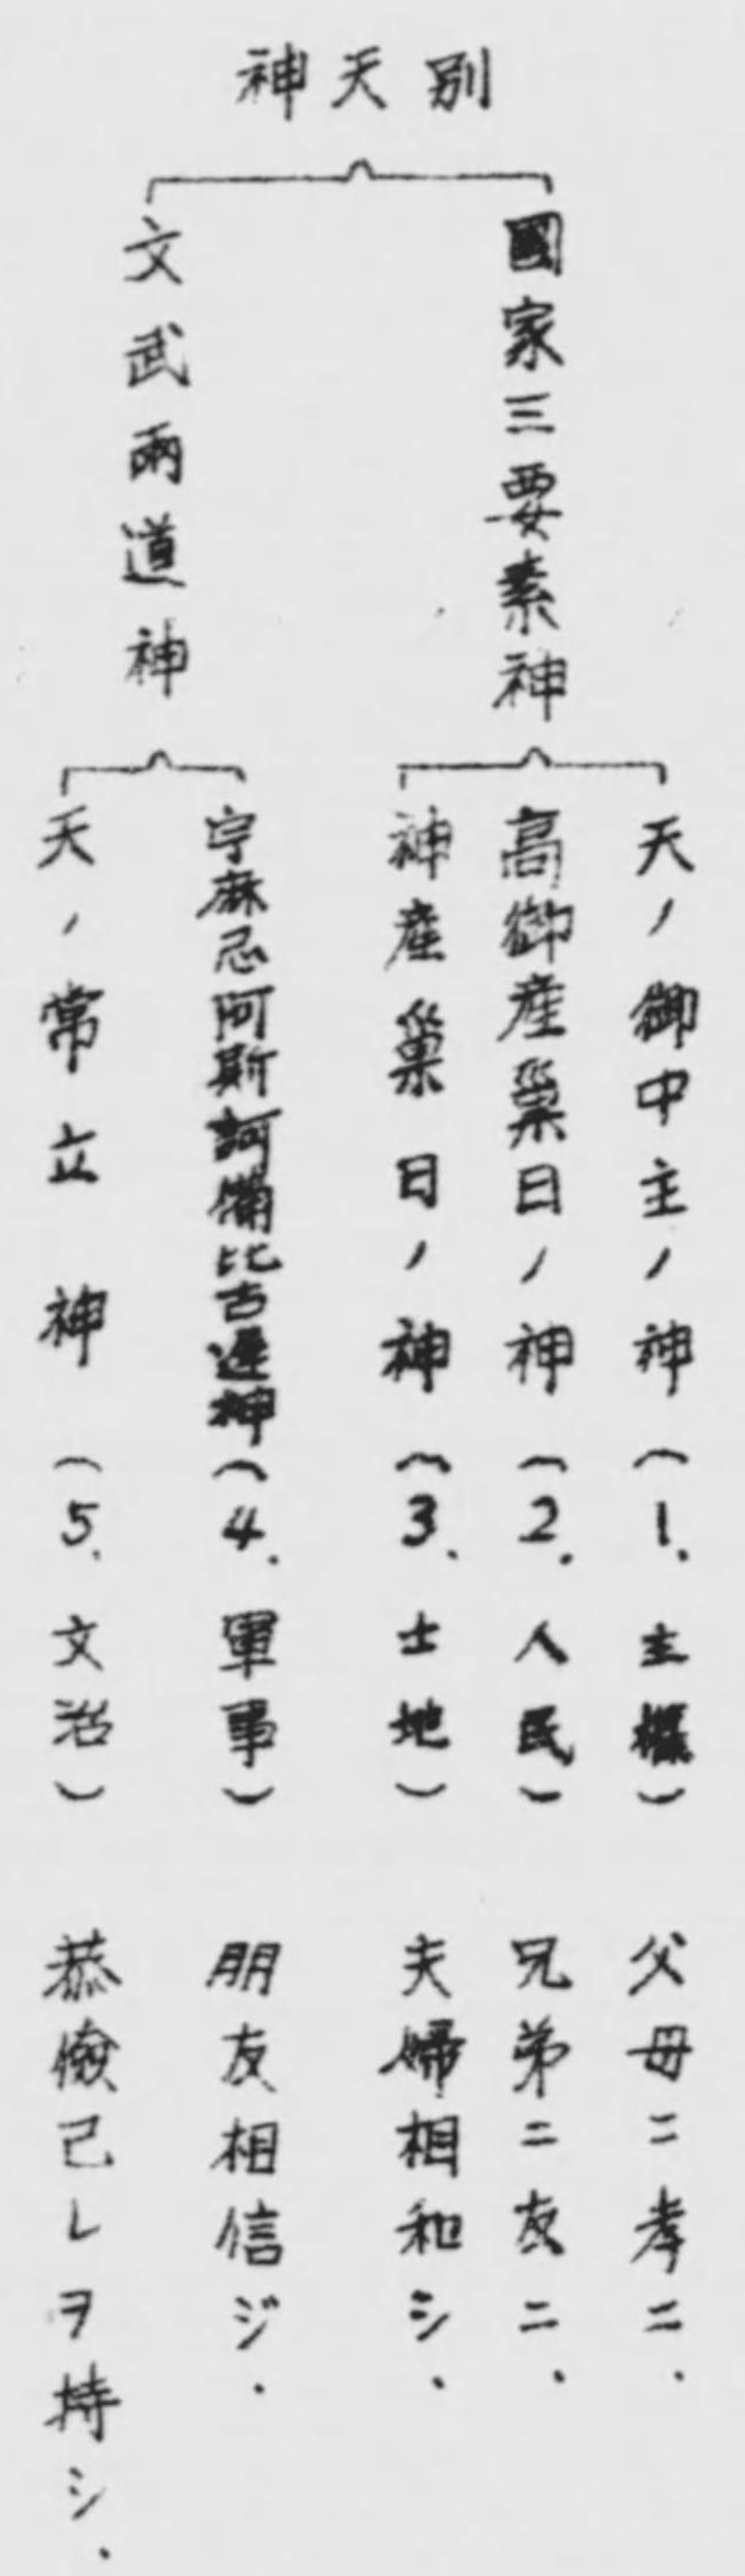 別天神
國家三要素神
天ノ御中主ノ神(1.主權)父母ニ孝ニ.
高御産巣日ノ神(2.人民)兄弟ニ友ニ.
神産巣日ノ神(3.土地)夫婦相和シ.
文武兩道神
宇麻志阿斯訶備比古遅神(4.軍事)朋友相信ジ.
天ノ常立神(5.文治)恭儉己レヲ持シ.